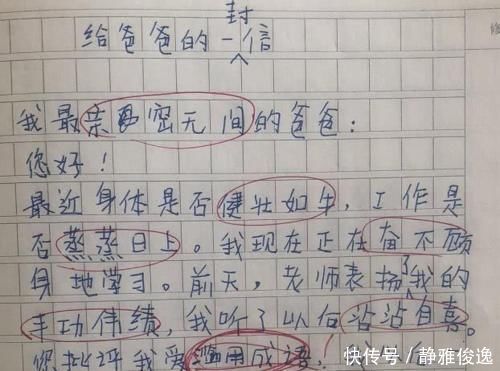 给爸爸的一封信
我最亲密无间的爸爸：
您好！
最近身体是否健壮如牛，工作是
否蒸蒸日上。我现在正在奋不顾
身地学习。前天，老师表扬了我的
丰功伟绩，我听了以后沾沾自喜。
您批评我爱滥用成语，
快传号／静雅俊逸